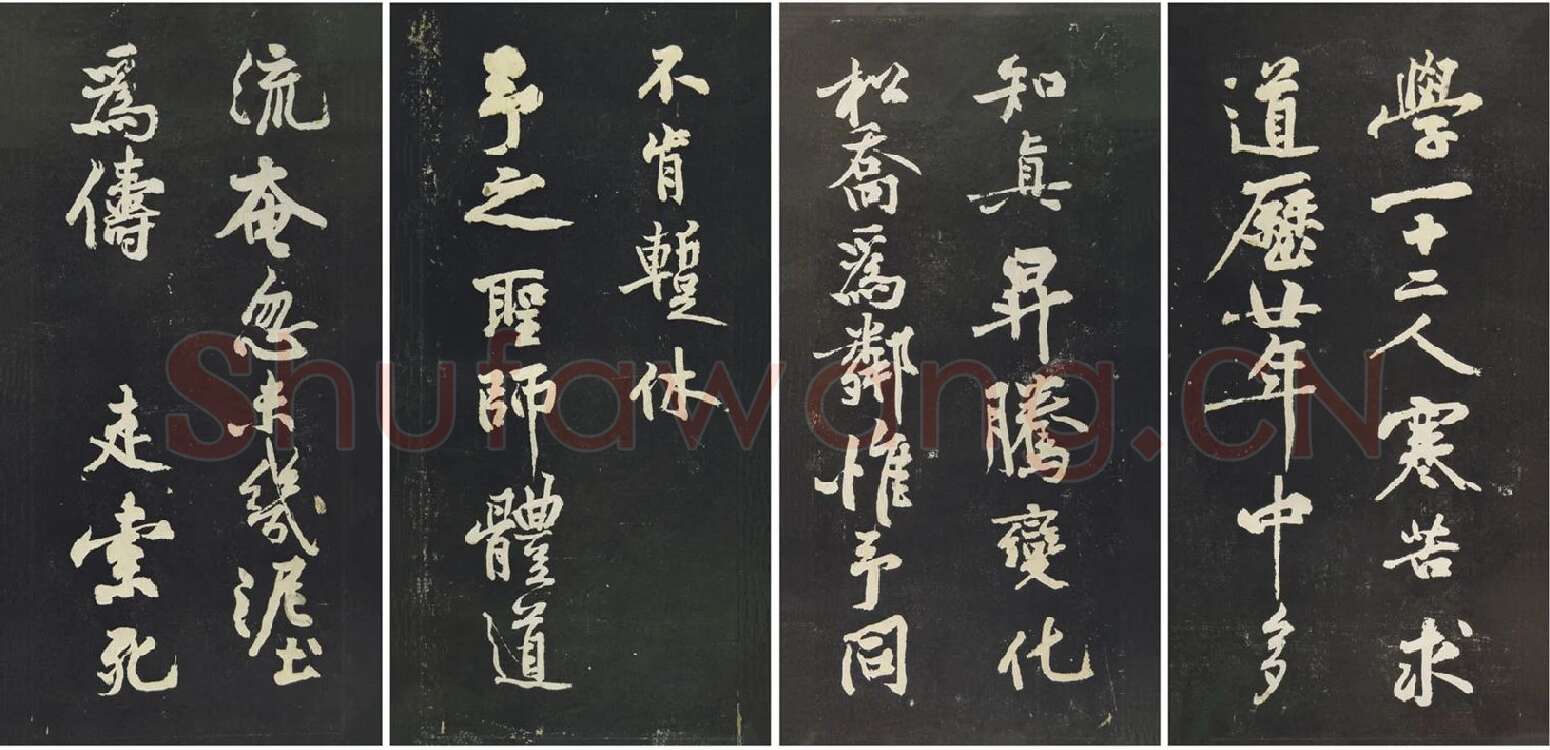 學一十二人寒苦求
道歷廿年中多
知真昇騰變化
松喬爲鄰惟予同
不肯暫休
予之聖師體道
流奄忽未幾泥土
爲儔 走索死
Shufawang.CN